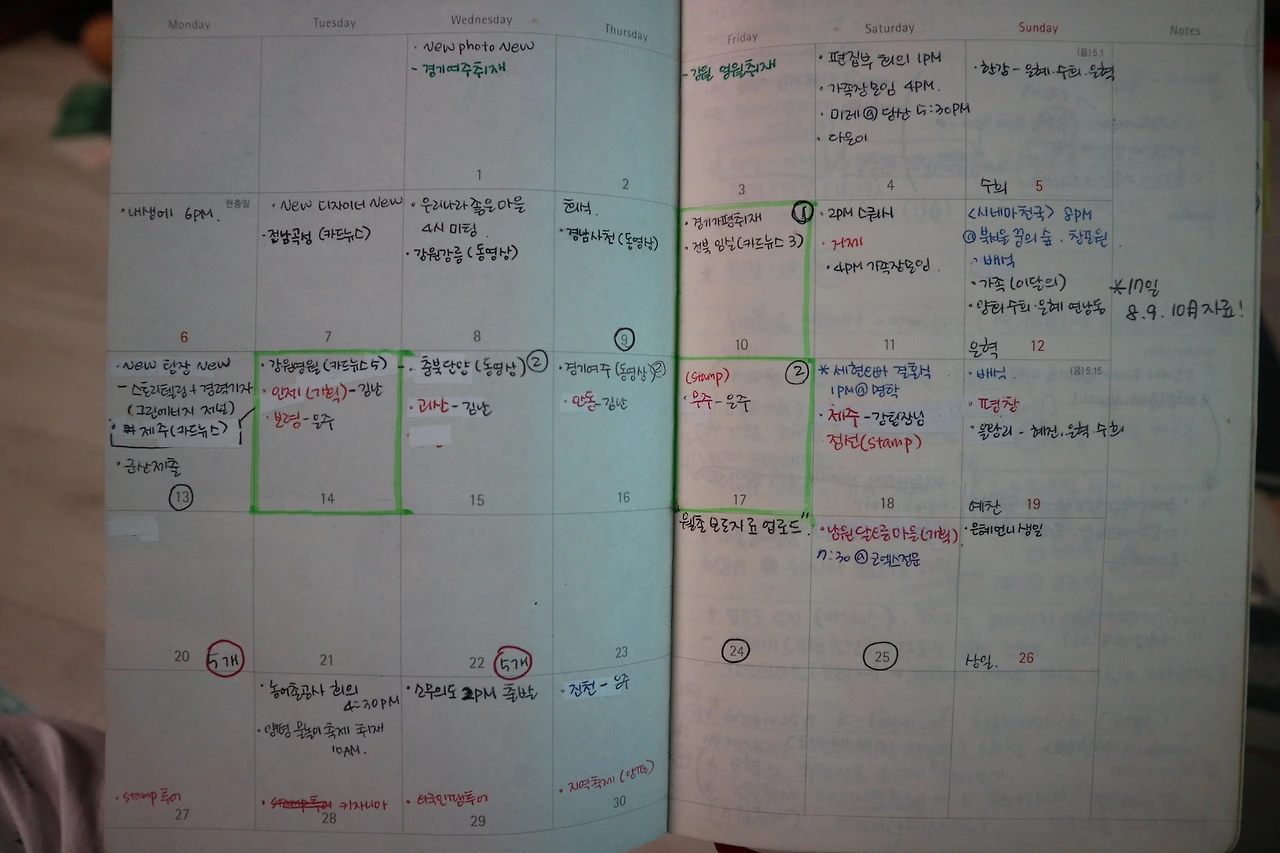 Monday
Tuesday
Wednesday
Thursday
Friday
Saturday
Sunday
Notes
· New photo New
- 경기여주취재
1
2
- 강원 영월취재
3
· 편집부 회의 1PM
· 가족장모임 4PM.
· 미레@ 당산 5:30PM
· 다운이
4
(음) 5.1
· 한강 - 은혜.수희.은혁
수희 5
· 내생에 6PM.
현충일
6
· New 디자이너 New
· 전남곡성 (카드뉴스)
7
· 우리나라 좋은마을
4시 미팅
· 강원강릉 (동영상)
8
· 경남사천 (동영상)
9
· 경기가평취재
1
· 전북 임실(카드뉴스 3)
10
· 2PM
· 거제
· 4PM 가족장모임.
11
<시네마천국> 8PM
@ 북서울 꿈의 숲. 창포원
· 배석
· 가족 (이달의)
· 양희수희·은혜 연남동
은혁 12
*17일
8. 9. 10월 자료!
· New 팀장 New
- 스토리텔링 + 경력기자
(그린에너지 저널)
· 제주 (카드뉴스)
· 군산제출
13
· 강원영월 (카드뉴스 5)
· 인제 (기획) - 김난
· 보령 - 은주
14
· 충북단양 (동영상) 2
· 괴산 - 김난
15
· 경기여주 (동영상) 2
- 김난
16
(stamp)
2
· 무주 - 은주
17
* 세현 결혼식
1PM@ 명학
· 제주 - 강팀장님
정선(stamp)
18
· 배석.
(음) 5.15
· 평창
- 혜진.은혁.수희
예찬 19
20
5개
21
22
5개
23
업로드"
24
· 남원달오름마을(기획)
7:30 @ 코엑스전문
25
· 은혜언니생일
상일. 26
· stamp투어
27
· 농어촌공사 회의
4:30PM
· 양평 물놀이축제 취재
10AM.
28
· 소무의도 2PM 출발
· 외국인팸투어
29
· 진천 - 은주
· 지역축제 (양평)
30